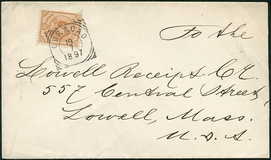 CURACAO
1897
To the
Lowell Receipt Co.
557 Central Street,
Lowell, Mass.
U.S.A